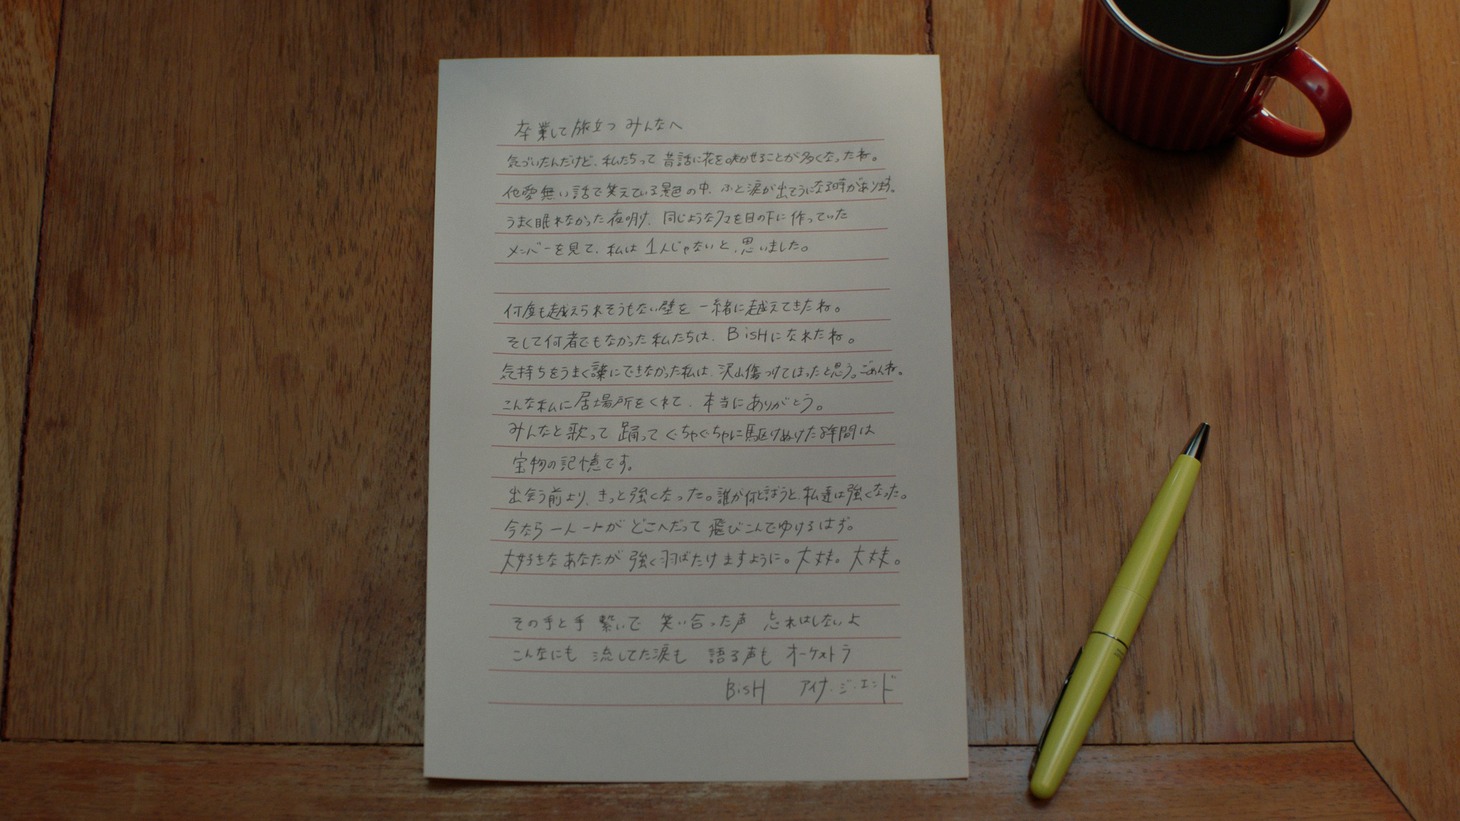 卒業して旅立つ みんなへ
気づいたんだけど、私たちって 昔話に花を咲かせることが多くなったね。
他愛無い話で笑えている景色の中、ふと涙が出そうになる時があります。
うまく眠れなかった夜の明け、同じようなクマを目の下に作っていた
メンバーを見て、私は1人じゃないと、思いました。
何度も越えられそうもない壁を 一緒に越えてきたね。
そして何者でもなかった私たちは、BiSHになれたね。
気持ちをうまく言葉にできなかった私は、沢山傷つけてしまったと思う。ごめんね。
こんな私に居場所をくれて、本当にありがとう。
みんなと歌って 踊って ぐちゃぐちゃに駆けぬけた8年間は
宝物の記憶です。
出会う前より、きっと強くなった。誰が何と言おうと、私達は強くなった。
今なら一人一人が どこへだって 飛びこんでゆけるはず。
大好きな あなたが 強く羽ばたけますように。大丈夫。大丈夫。
その手と手 繋いで 笑い合った声 忘れはしないよ
こんなにも 流してた涙も 語る声も オーケストラ
BiSH アイナ・ジ・エンド